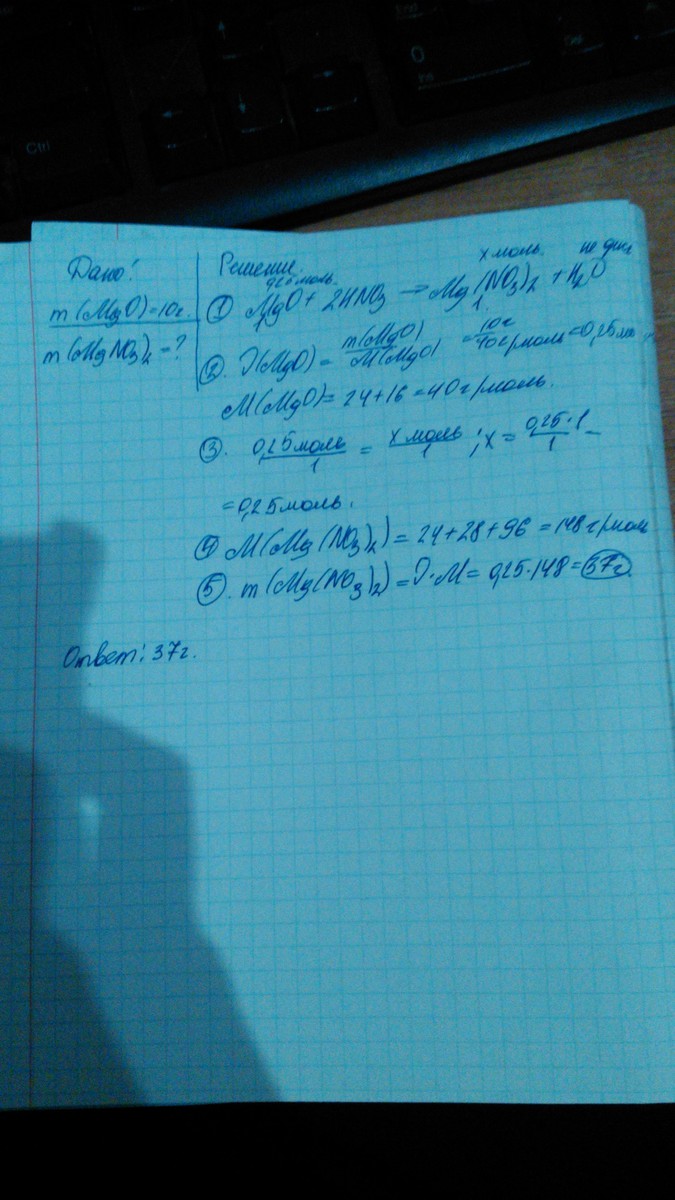 Ctrl
0
Ins
Дано:
m(MgO)=10г.
m(MgNO3)2=?
Решение.
0,25 моль. х моль.
① MgO + 2HNO3 → Mg(NO3)2 + H2O
1 1
②. ν(MgO) = m(MgO)/M(MgO) = 10г/40г/моль = 0,25моль
M(MgO) = 24+16 = 40г/моль.
③. 0,25моль/1 = х моль/1; х = 0,25·1/1 =
= 0,25моль.
④ M(Mg(NO3)2) = 24+28+96 = 148г/моль
⑤. m(Mg(NO3)2) = ν·M = 0,25·148 = 37г.
Ответ: 37г.